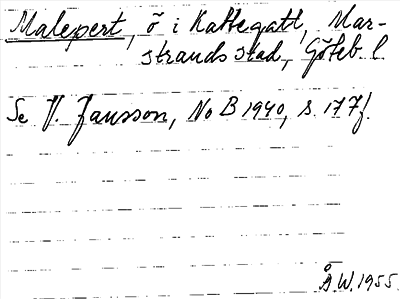 Malepert, ö i Kattegatt, Mar-
strands stad, Göteb. l.
Se V. Jansson, NoB 1940, s. 177f.
Å.W. 1955.